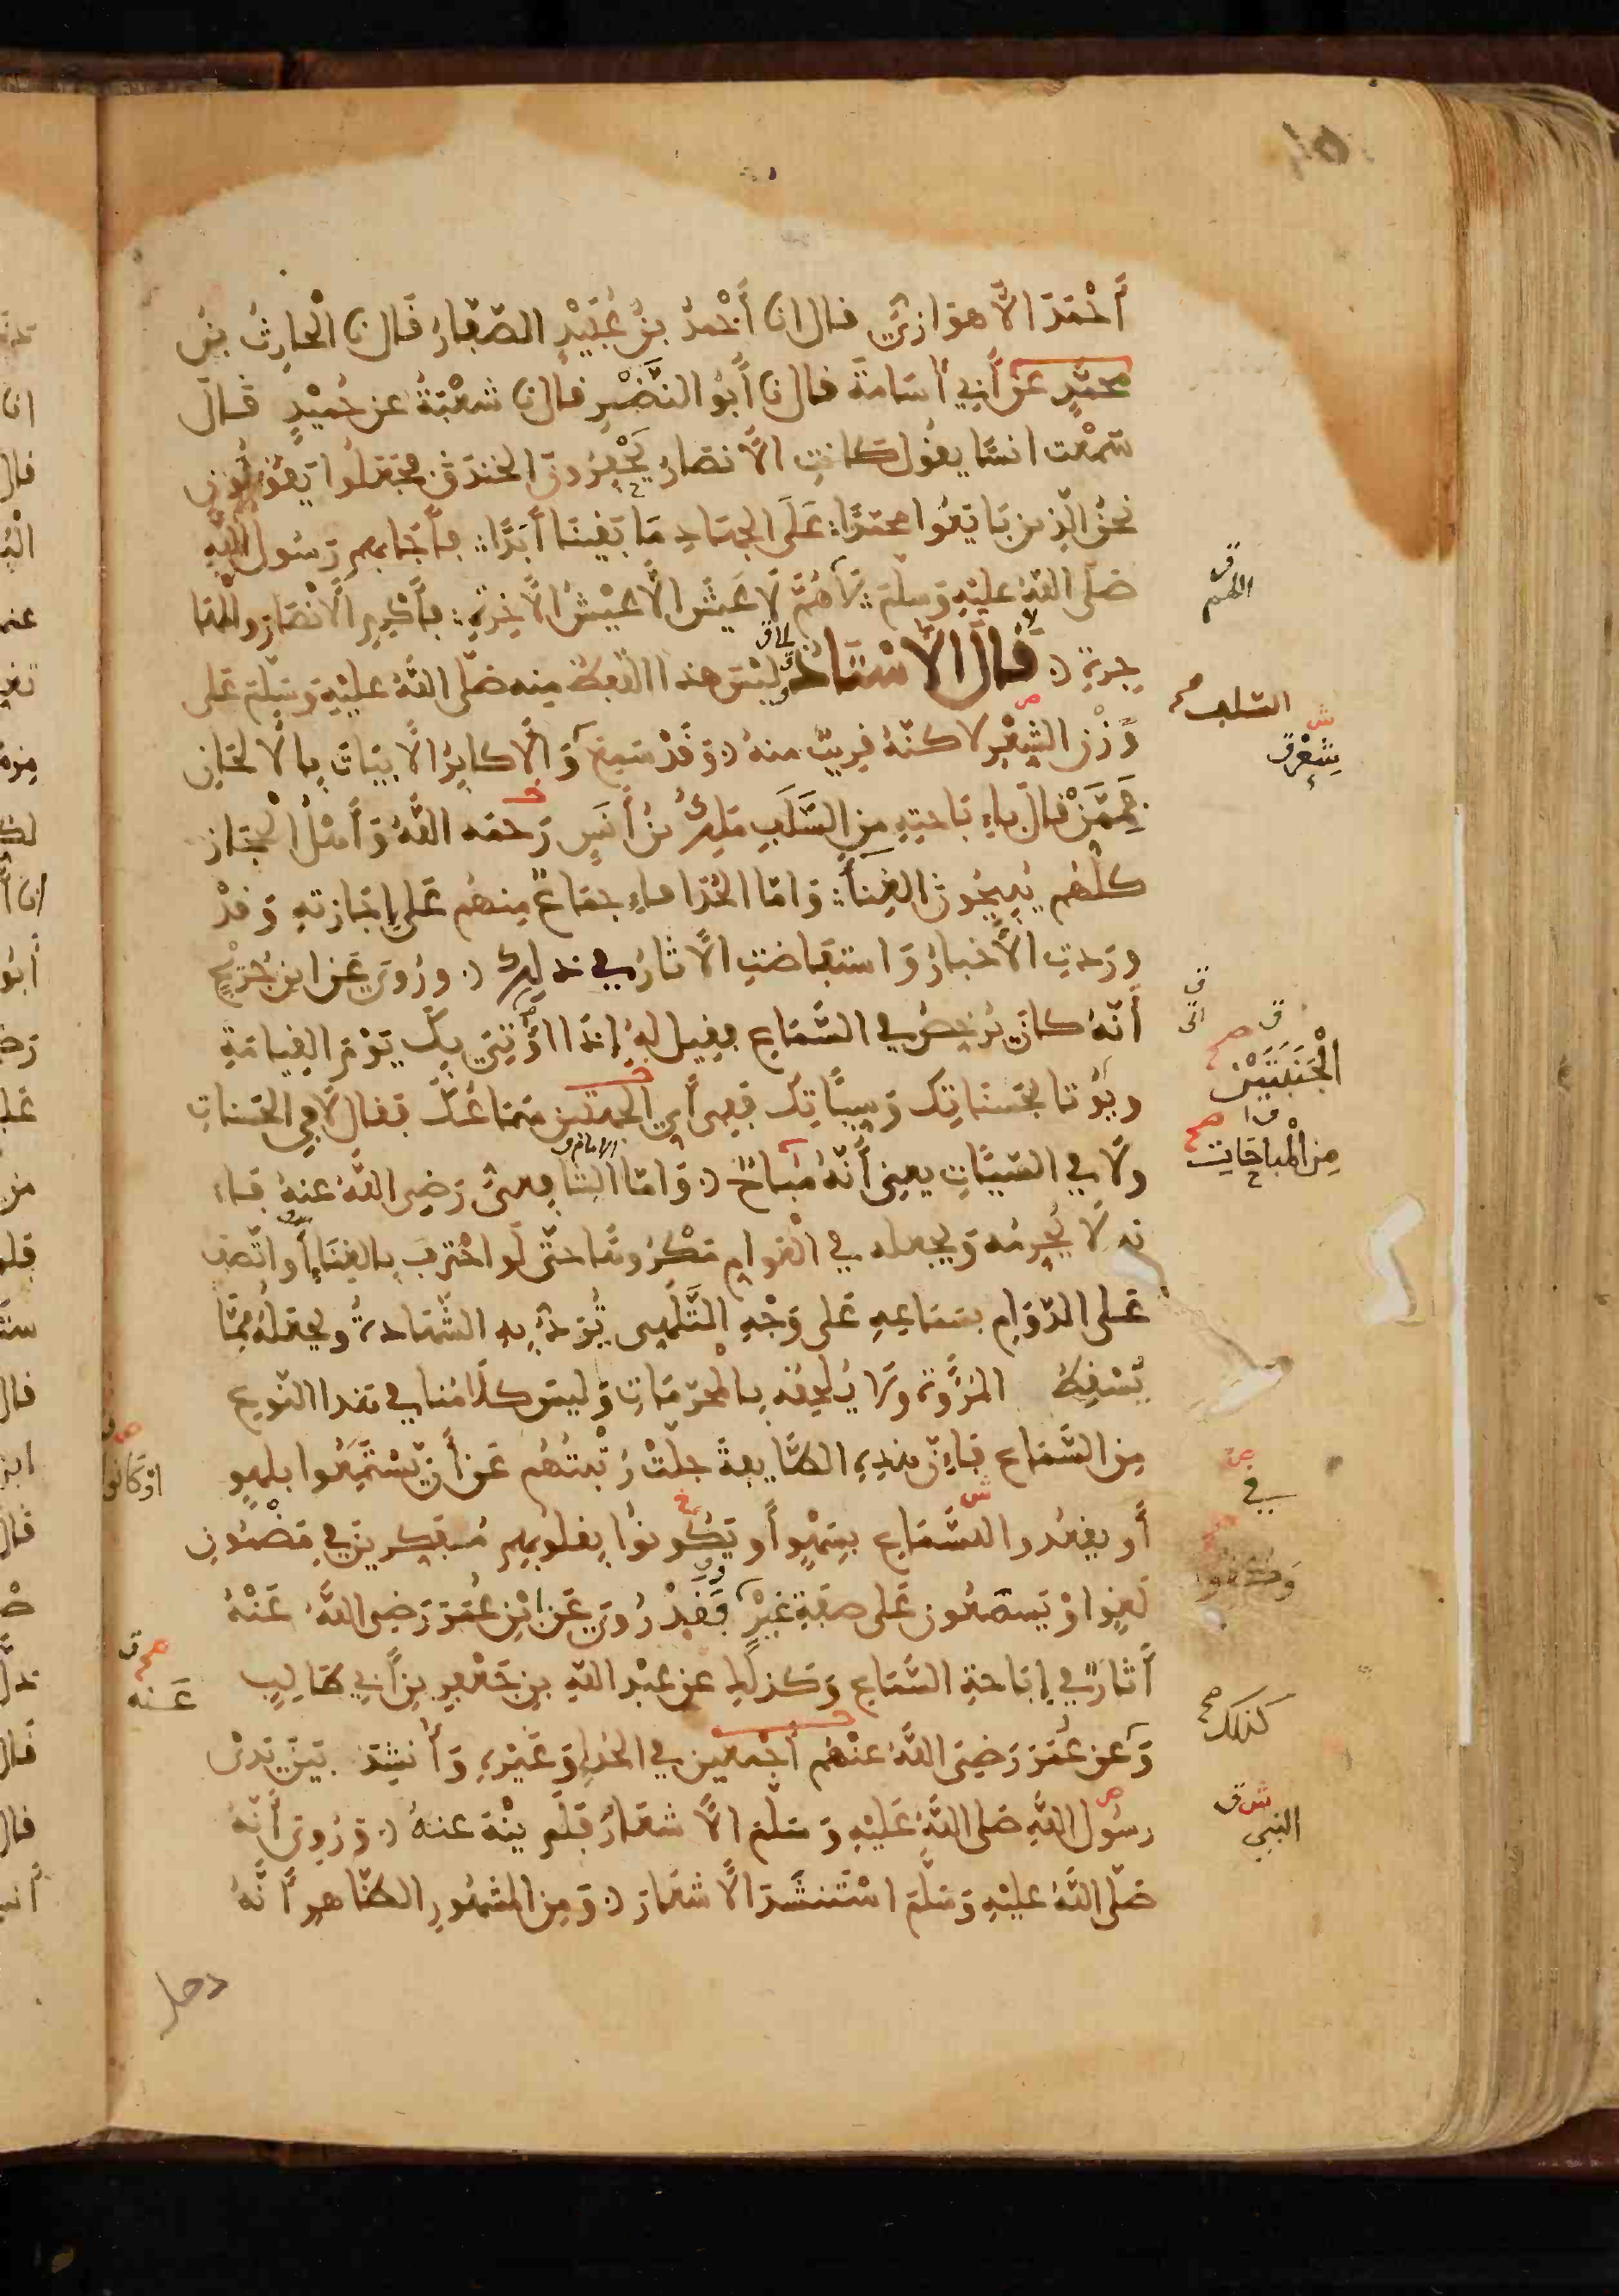 أَحْمَدَ الأَهْوَازِيّ قال انا أَحْمَدُ بنُ عُبَيْدٍ الصَّفّارُ قَال نا الْحارِثُ بنُ
محمّدٍ عن أَبِي أُسَامَةَ قال نا أَبُو النَّضْرِ قال نا شُعْبَةُ عن حُمَيْدٍ قَالَ
سَمِعْت انسًا يقُول كانتِ الأَنصَارُ يَحْفِرُونَ الخندَقَ فجَعَلُوا يَقُولُونَ
نحنُ الّذِين بَايَعُوا محمّدًا عَلَى الجهَادِ مَا بَقِينَا أَبَدًا فأَجَابهم رَسُول اللهِ
صَلَّى اللهُ عليْهِ وَسلّمَ لَاهُمَّ لَا عَيْشَ الَّا عَيْشُ الآخِرَةِ فأَكْرِمِ الأَنْصَارَ والمُهَا
جِرَةِ قَالَ الأُسْتَاذُ ليْسَ هذا اللّفظُ منه صَلّى اللهُ عليْهِ وَسَلّمَ عَلى
وَزْنِ الشِّعْرِ لاكنّهُ قريبٌ منهُ وَقَدْ سَمِعَ وَالأَكابِرُ الأَبيَاتَ بِالأَلحَانِ
فَمِمَّنْ قَالَ بِإِبَاحتِهِ مِن السَّلَفِ مَلِكُ بنُ أَنَسٍ رَحمَه اللهُ وَأَهْلُ الْحِجَازِ
كلُّهُم يُبِيحُونَ الغِنَاءَ وَامّا الحُدَا فإِجمَاعٌ مِنهُم عَلَى إِجَازتهِ وَقدْ
وَرَدتِ الأَخبارُ وَاستفَاضتِ الآثارُ في ذلِك ورُوِيَ عَن ابنِ جُرَيْجٍ
أَنّهُ كانَ يُرخِّصُ في السَّمَاعِ فقِيل لهُ إِذَا أُوتِيَ بِكَ يَوْمَ القِيامَةِ
ويُوتَا بحَسنَاتِكَ وَسيِّئاتِكَ فَفِي أَيِّ الجهتَين سَمَاعُكَ فقالَ لَا فِي الحَسَناتِ
ولَا في السّيّئَاتِ يعنِي أَنّهُ مُبَاحٌ وَامّا الشّافِعيُّ رَضِي اللهُ عنهُ فإِ
نه لَا يُحَرِّمُه وَيجعله في الْعَوامِ مَكْرُوهًا حتّى لَو احْترفَ بِالغِنَاءِ أَو اتّصَفَ
عَلى الدّوَامِ بسَمَاعِهِ عَلى وَجْهِ التَّلَهِّي تُرَدُّ بِهِ الشَّهَادةُ ويجعَلهُ مِمَّا
يُسْقِطُ المُرُوَّةَ وَلَا يُلحِقُه بِالمحرّمَاتِ وَليسَ كلَامُنا في هَذا النّوعِ
مِن السَّمَاع فَإِنّ هذِهِ الطَّايِفةَ جلّتْ رُتْبتُهُم عَن أَن يّسْتَمِعُوا بلهوٍ
أَو يقعُدوا للسَّمَاعِ بسَهْوٍ أَو يَكُونُوا بِقلوبِهِم مُفكِرِينَ في مَضمُونِ
لَغوٍ اوْ يَستمعُونَ عَلى صِفةِ غيْرِ فَقَدْ رُوِيَ عَنِ ابْنِ عُمَرَ رَضِيَ اللهُ عَنْهُ
أَثارٌ في إِبَاحةِ السَّمَاعِ وَكذلِك عن عبْدِ اللهِ بنِ جَعْفرِ بنِ أَبِي طَالِبٍ
وَعَن عُمَرَ رَضِيَ اللهُ عنْهُم أَجْمعِينَ في الحُدَاءِ وَغَيْرِهِ وَأُنشِدَ بَيْنَ يَدَيْ
رسُولِ اللهِ صَلى اللهُ عَلَيْهِ وَسَلّمَ الأَشعَارُ فَلَم ينْهَ عنهُ وَرُوِيَ أَنّهُ
صَلّى اللهُ عليْهِ وَسَلّمَ اسْتَنشَدَ الأَشعَارَ وَمِن المشهُورِ الظّاهِرِ أَنّهُ
اللهم
السلف صح
شعر
اتى
الْجَنَبَتَيْنِ صح
مِن الْمُبَاحَاتِ صح
الامام
اوْ كَانُوا
في
عَنه صح
كذلك صح
النبي
دخل